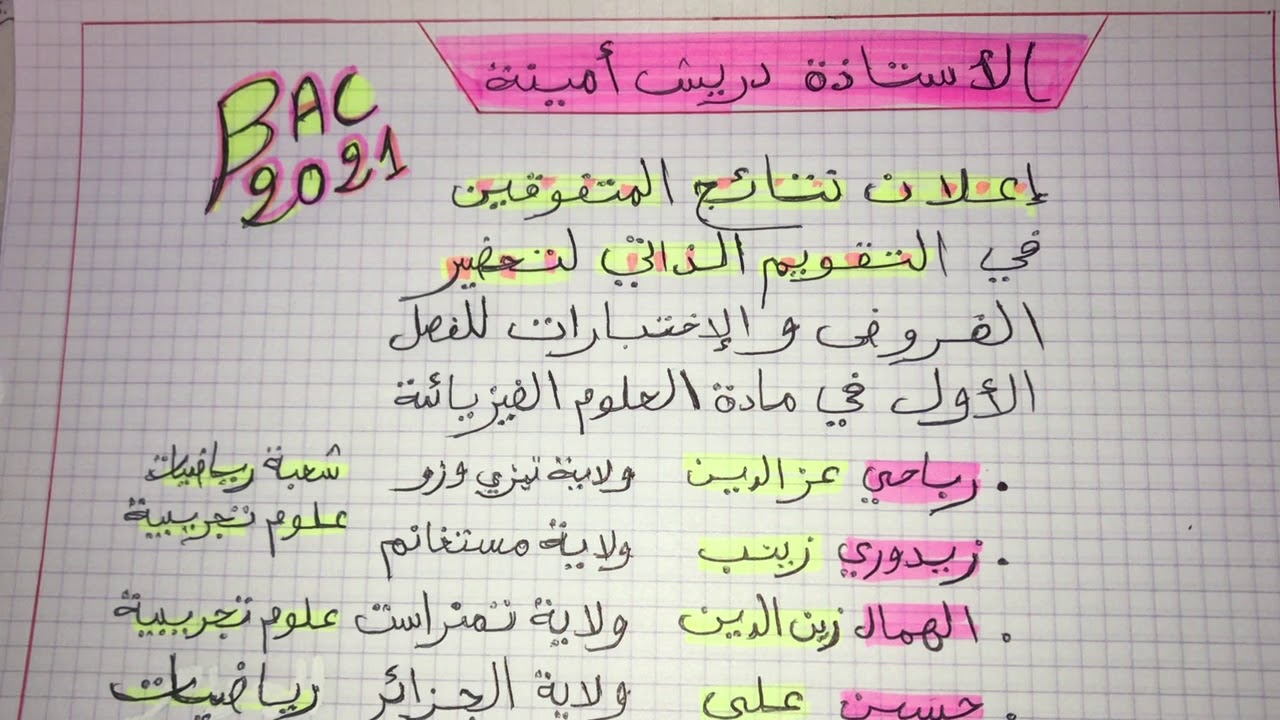 الأستاذة دريش أمينة
BAC
2021
إعلان نتائج المتفوقين
في التقويم الذاتي لتحضير
الفروض والإختبارات للفصل
الأول في مادة العلوم الفيزيائة
. رباحي عز الدين ولاية تيزي وزو شعبة رياضيات
. زيدوري زينب ولاية مستغانم علوم تجريبية
. الهمال زين الدين ولاية تمنراست علوم تجريبية
. حسين علي ولاية الجزائر رياضيات